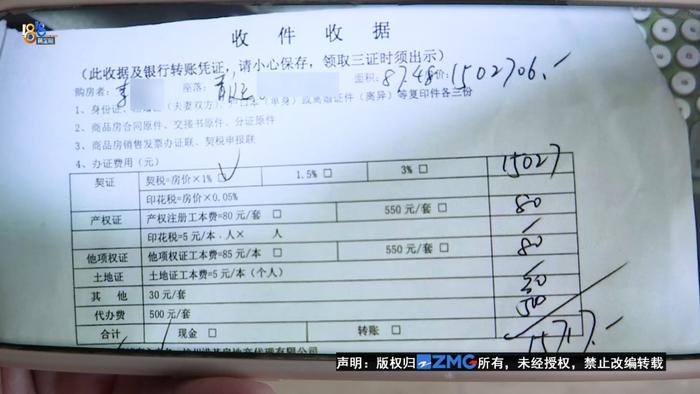 收 件 收 据
(此收据及银行转账凭证，请小心保存，领取三证时须出示)
购房者：李 座落： 面积：8748 价：1502706.-
1、身份证、 (夫妻双方)、 (单身) 或离婚证件 (离异) 等复印件各三份
2、商品房合同原件、交接书原件、分证原件
3、商品房销售发票办证联、契税申报联
4、办证费用(元)
契证 契税=房价×1% □ ✓ 1.5% □ 3% □ 15027
印花税=房价×0.05%
产权证 产权注册工本费=80元/套 □ 550元/套 □ 80
印花税=5元/本．人× 人
他项权证 他项权证工本费=85元/本 □ 550元/套 □ 80
土地证 土地证工本费=5元/本（个人）
其 他 30元/套 30
代办费 500元/套 500
合计 现金 □ 转账 □ 15717.-
声明：版权归ZMG所有，未经授权，禁止改编转载